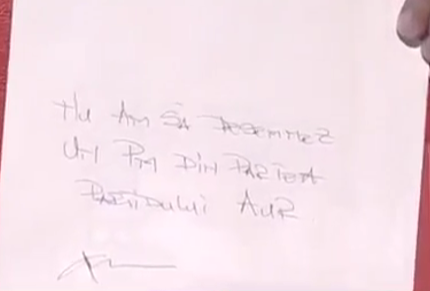 NU AM SĂ DESEMNEZ
UN PM DIN PARTEA
PARTIDULUI AUR